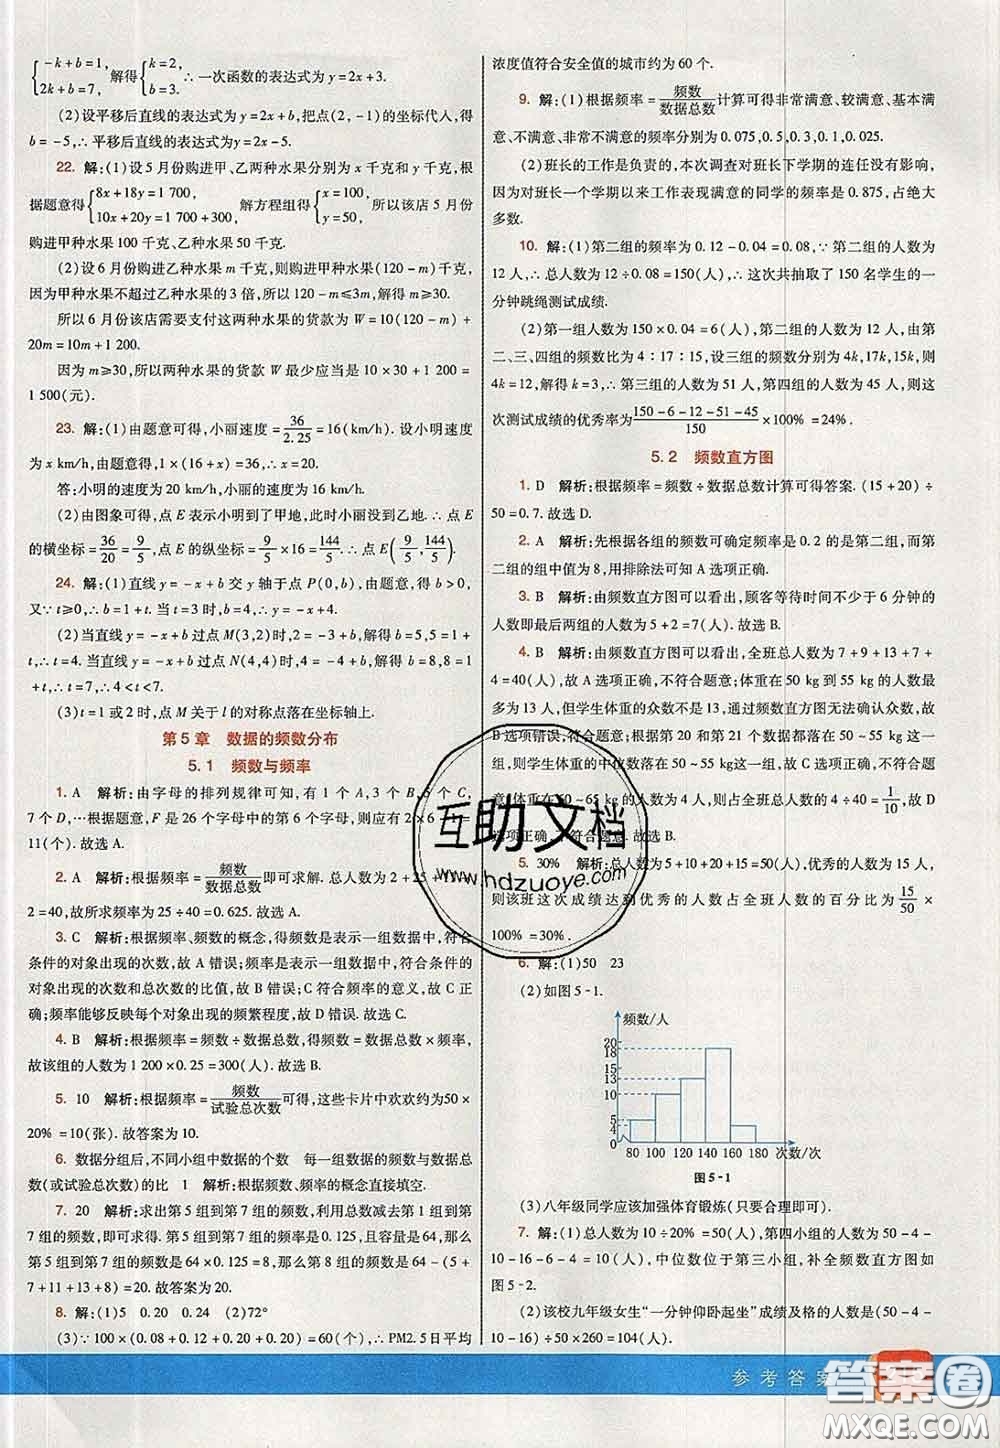 {-k+b=1, 2k+b=7, 解得{k=2, b=3. ∴一次函数的表达式为y=2x+3.
(2)设平移后直线的表达式为y=2x+b,把点(2,-1)的坐标代人,得
b=-5,∴平移后直线的表达式为y=2x-5.
22. 解:(1)设5月份购进甲、乙两种水果分别为x千克和y千克,根
据题意得{8x+18y=1 700, 10x+20y=1 700+300, 解方程组得{x=100, y=50, 所以该店5月份
购进甲种水果100千克、乙种水果50千克.
(2)设6月份购进乙种水果m千克,则购进甲种水果(120-m)千克,
因为甲种水果不超过乙种水果的3倍,所以120-m≤3m,解得m≥30.
所以6月份该店需要支付这两种水果的货款为W=10(120-m)+
20m=10m+1 200.
因为m≥30,所以两种水果的货款W最少应当是10×30+1 200=
1 500(元).
23. 解:(1)由题意可得,小丽速度=36/2.25=16(km/h).设小明速度
为x km/h,由题意得,1×(16+x)=36,∴x=20.
答:小明的速度为20 km/h,小丽的速度为16 km/h.
(2)由图象可得,点E表示小明到了甲地,此时小丽没到乙地.∴点E
的横坐标=36/20=9/5,点E的纵坐标=9/5×16=144/5,∴点E(9/5,144/5).
24. 解:(1)直线y=-x+b交y轴于点P(0,b),由题意,得b>0,
又∵t≥0,∴b=1+t.当t=3时,b=4,∴y=-x+4.
(2)当直线y=-x+b过点M(3,2)时,2=-3+b,解得b=5,5=1+
t,∴t=4.当直线y=-x+b过点N(4,4)时,4=-4+b,解得b=8,8=1
+t,∴t=7.∴4<t<7.
(3)t=1或2时,点M关于l的对称点落在坐标轴上.
第5章 数据的频数分布
5.1 频数与频率
1. A 解析:由字母的排列规律可知,有1个A,3个B,5个C,
7个D,…根据题意,F是26个字母中的第6个字母,则应有2×6-1=
11(个).故选A.
2. A 解析:根据频率=频数/数据总数即可求解.总人数为2+25+11+
2=40,故所求频率为25÷40=0.625.故选A.
3. C 解析:根据频率、频数的概念,得频数表示一组数据中,符合
条件的对象出现的次数,故A错误;频率是表示一组数据中,符合条件
的对象出现的次数和总次数的比值,故B错误;C符合频率的意义,故C
正确;频率能够反映每个对象出现的频繁程度,故D错误.故选C.
4. B 解析:根据频率=频数÷数据总数,得频数=数据总数×频率,
故该组的人数为1 200×0.25=300(人).故选B.
5. 10 解析:根据频率=频数/试验总次数可得,这些卡片中欢欢约为50×
20%=10(张).故答案为10.
6. 数据分组后,不同小组中数据的个数 每一组数据的频数与数据总
数(或试验总次数)的比 1 解析:根据频数、频率的概念直接填空.
7. 20 解析:求出第5组到第7组的频数,利用总数减去第1组到第
7组的频数,即可求得.第5组到第7组的频率是0.125,且容量是64,
那么第5组到第7组的频数是64×0.125=8,那么第8组的频数是64-(5+
7+11+13+8)=20.故答案为20.
8. 解:(1)5 0.20 0.24 (2)72°
(3)∵100×(0.08+0.12+0.20+0.20)=60(个),∴PM2.5日平均
浓度值符合安全值的城市约为60个.
9. 解:(1)根据频率=频数/数据总数计算可得非常满意、较满意、基本满
意、不满意、非常不满意的频率分别为0.075,0.5,0.3,0.1,0.025.
(2)班长的工作是负责的,本次调查对班长下学期的连任没有影响,
因为对班长一个学期以来工作表现满意的同学的频率是0.875,占绝大
多数.
10. 解:(1)第二组的频率为0.12-0.04=0.08,∵第二组的人数为
12人,∴总人数为12÷0.08=150(人),∴这次共抽取了150名学生的一
分钟跳绳测试成绩.
(2)第一组人数为150×0.04=6(人),第二组的人数为12人,由第
二、三、四组的频数比为4∶17∶15,设三组的频数分别为4k,17k,15k,则
4k=12,解得k=3,∴第三组的人数为51人,第四组的人数为45人,则这
次测试成绩的优秀率为(150-6-12-51-45)/150×100%=24%.
5.2 频数直方图
1. D 解析:根据频率=频数÷数据总数计算可得答案.(15+20)÷
50=0.7.故选D.
2. A 解析:先根据各组的频数可确定频率是0.2的是第二组,而第
二组的组中值为8,用排除法可知A选项正确.
3. B 解析:由频数直方图可以看出,顾客等待时间不少于6分钟的
人数即最后两组的人数为5+2=7(人).故选B.
4. B 解析:由频数直方图可以看出,全班总人数为7+9+13+7+
4=40(人),故A选项正确,不符合题意;体重在50 kg到55 kg的人数
最多,但学生体重的众数不是13,通过频数直方图无法确定众数,故
B选项错误,符合题意;第20和第21个数据都在50~55这一
组,则学生体重的中位数落在50~55这一组,故C选项正确,不符合题
意;体重在60~65的人数为4人,则占全班总人数的4÷40=1/10,故D
选项正确,不符合题意.故选B.
5. 30% 解析:总人数为5+10+20+15=50(人),优秀的人数为15人,
则该班这次成绩达到优秀的人数占全班人数的百分比为15/50×
100%=30%.
6. 解:(1)50 23
(2)如图5-1.
频数/人
20
18
15
13
10
5
4
0
80 100 120 140 160 180 次数/次
图5-1
(3)八年级同学应该加强体育锻炼(只要合理即可).
7. 解:(1)总人数为10÷20%=50(人),则第四小组的人数为50-4-
10-16-6-4=10(人),中位数位于第三小组,补全频数直方图如
图5-2.
(2)该校九年级女生“一分钟仰卧起坐”成绩及格的人数是(50-4-
10-16)÷50×260=104(人).
互助文档
www.hdzuoye.com
参考答案
答案圈
MXQE.COM